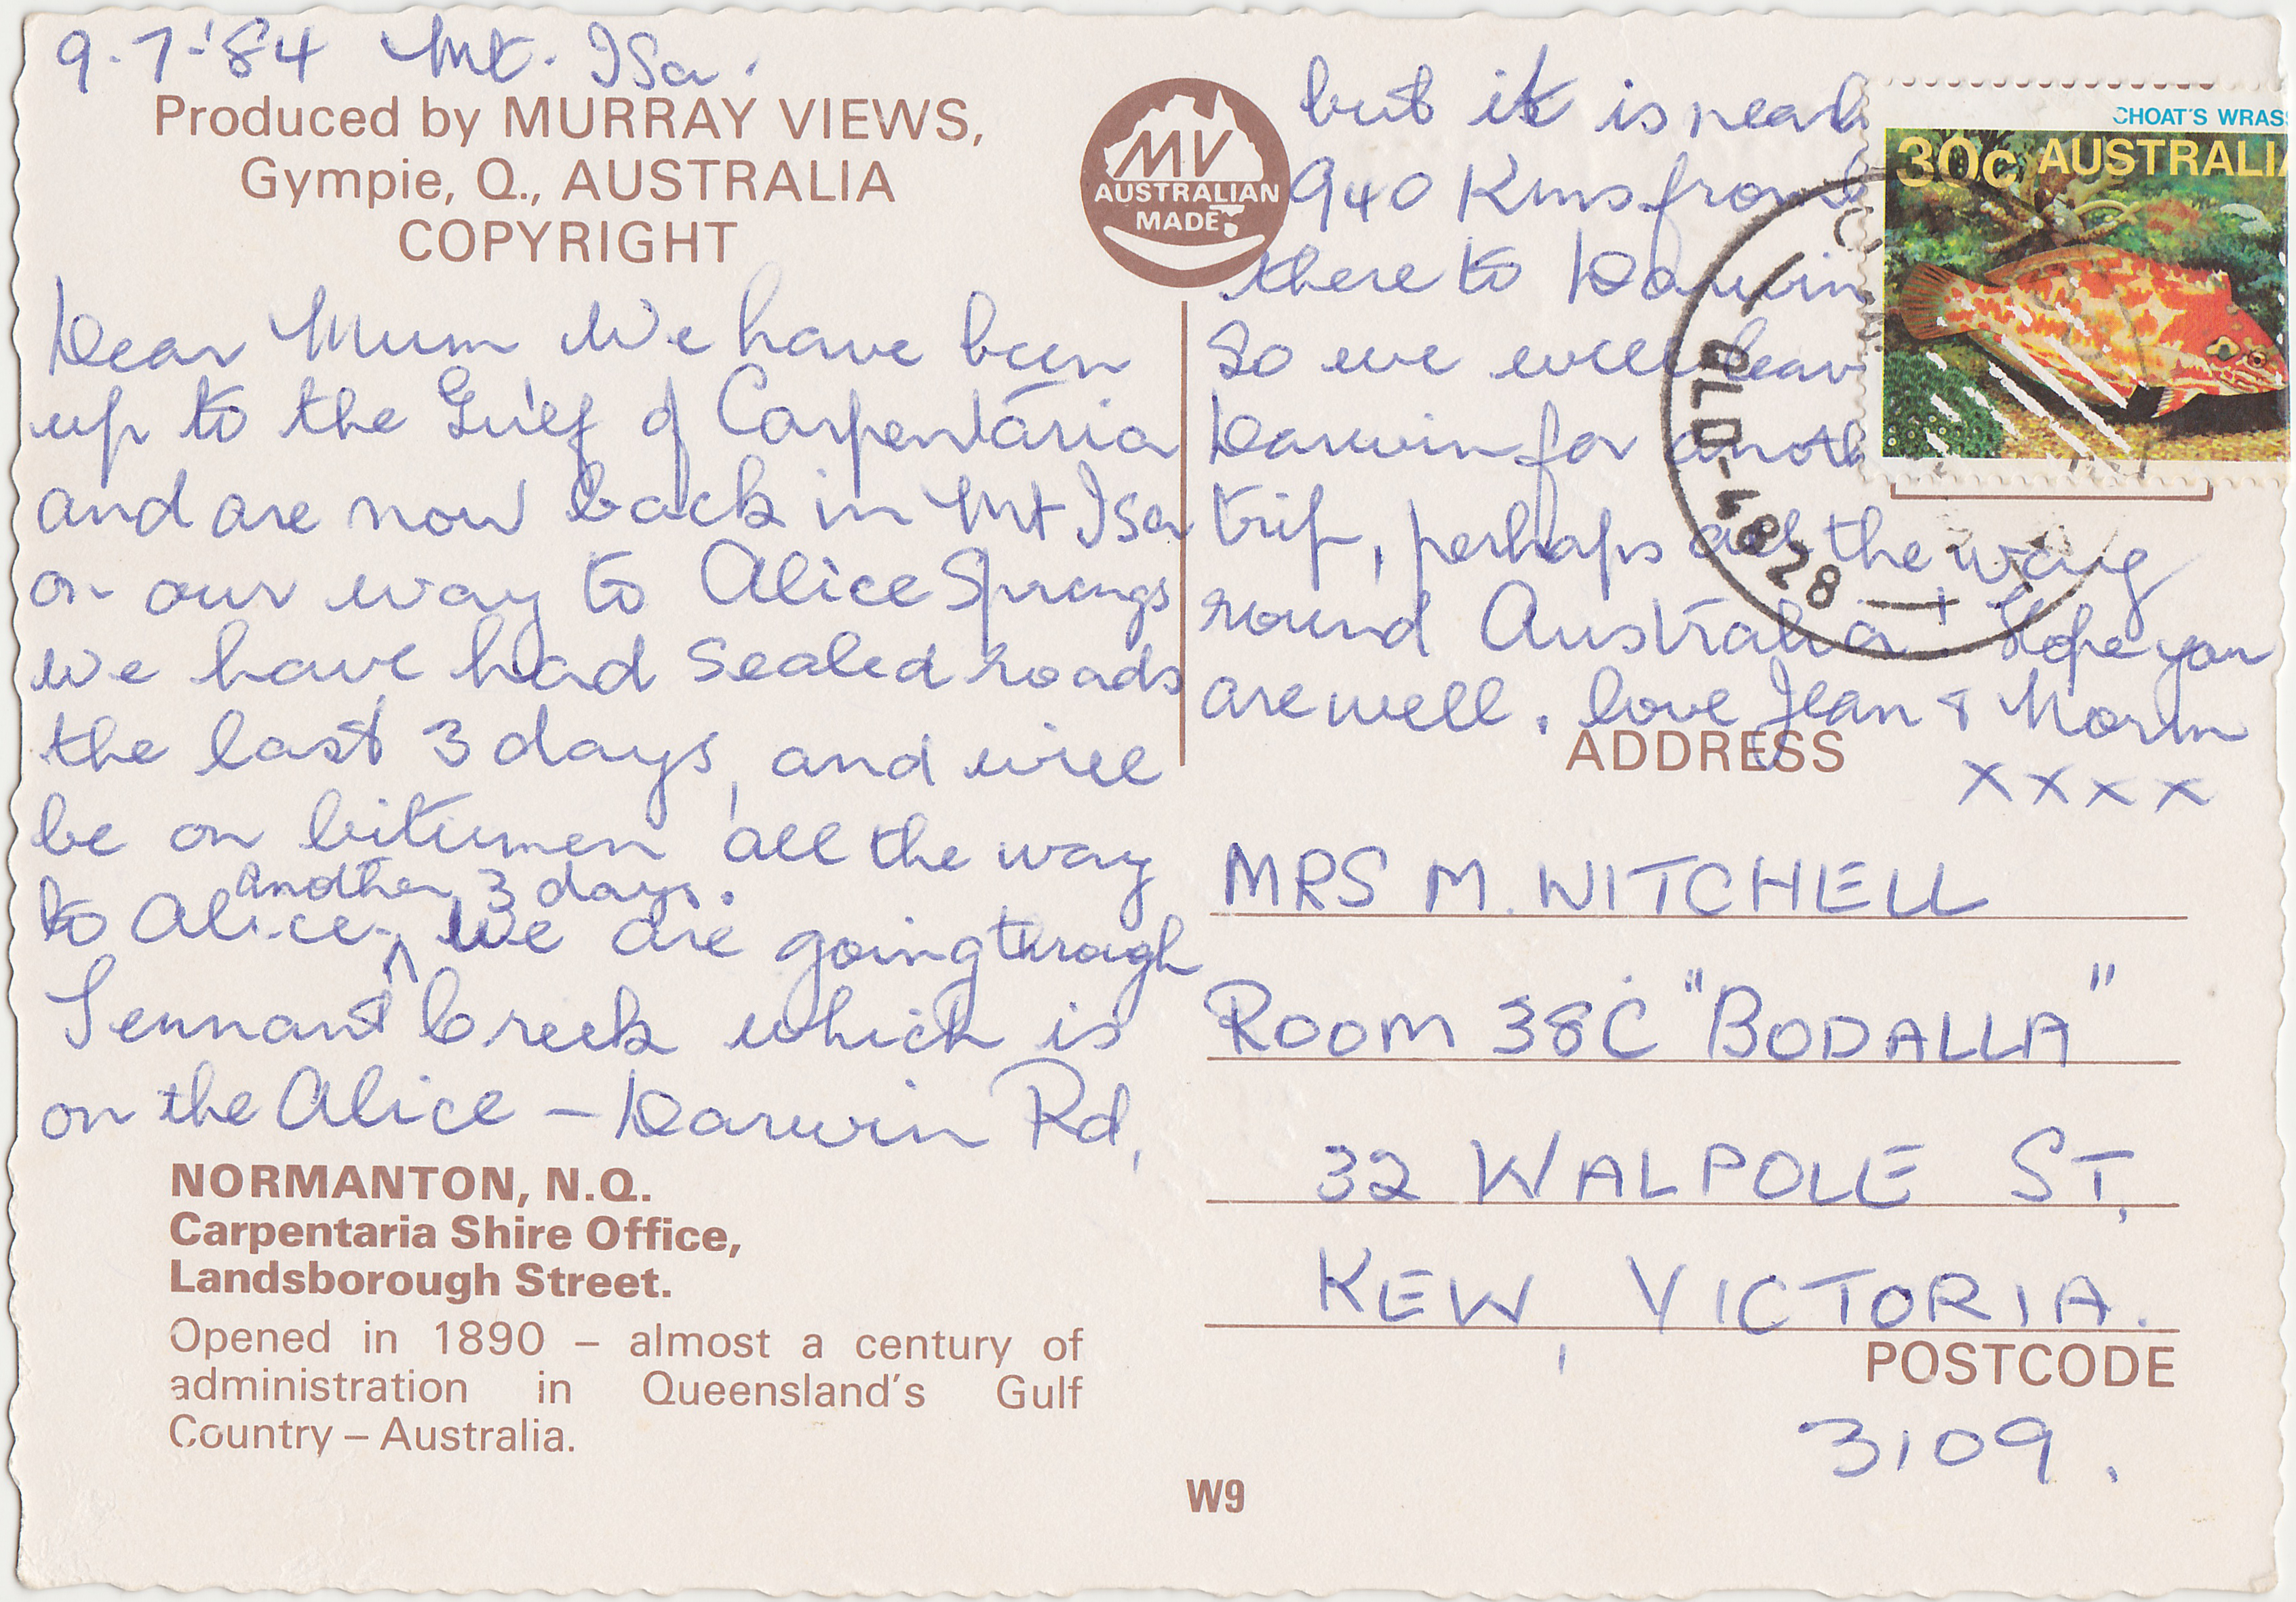 9.7-'84 Mt. Isa.
Produced by MURRAY VIEWS,
Gympie, Q., AUSTRALIA
COPYRIGHT
MV
AUSTRALIAN
MADE
Dear Mum We have been
up to the Gulf of Carpentaria
and are now back in Mt Isa
on our way to Alice Springs
we have had sealed roads
the last 3 days, and will
be on bitumen all the way
another 3 days.
to Alice, we are going through
Tennant Creek which is
on the Alice – Darwin Rd,
NORMANTON, N.Q.
Carpentaria Shire Office,
Landsborough Street.
Opened in 1890 – almost a century of
administration in Queensland's Gulf
Country – Australia.
W9
but it is near
940 Kms from
there to Darwin
So we will leav
Darwin for anoth
trip, perhaps all the way
round Australia! Hope you
are well. love Jean & Norm
xxxx
CHOAT'S WRAS
30c AUSTRALIA
QLD-4828
ADDRESS
MRS M. WITCHELL
ROOM 38C "BODALLA"
32 WALPOLE ST,
KEW, VICTORIA.
POSTCODE
3109.